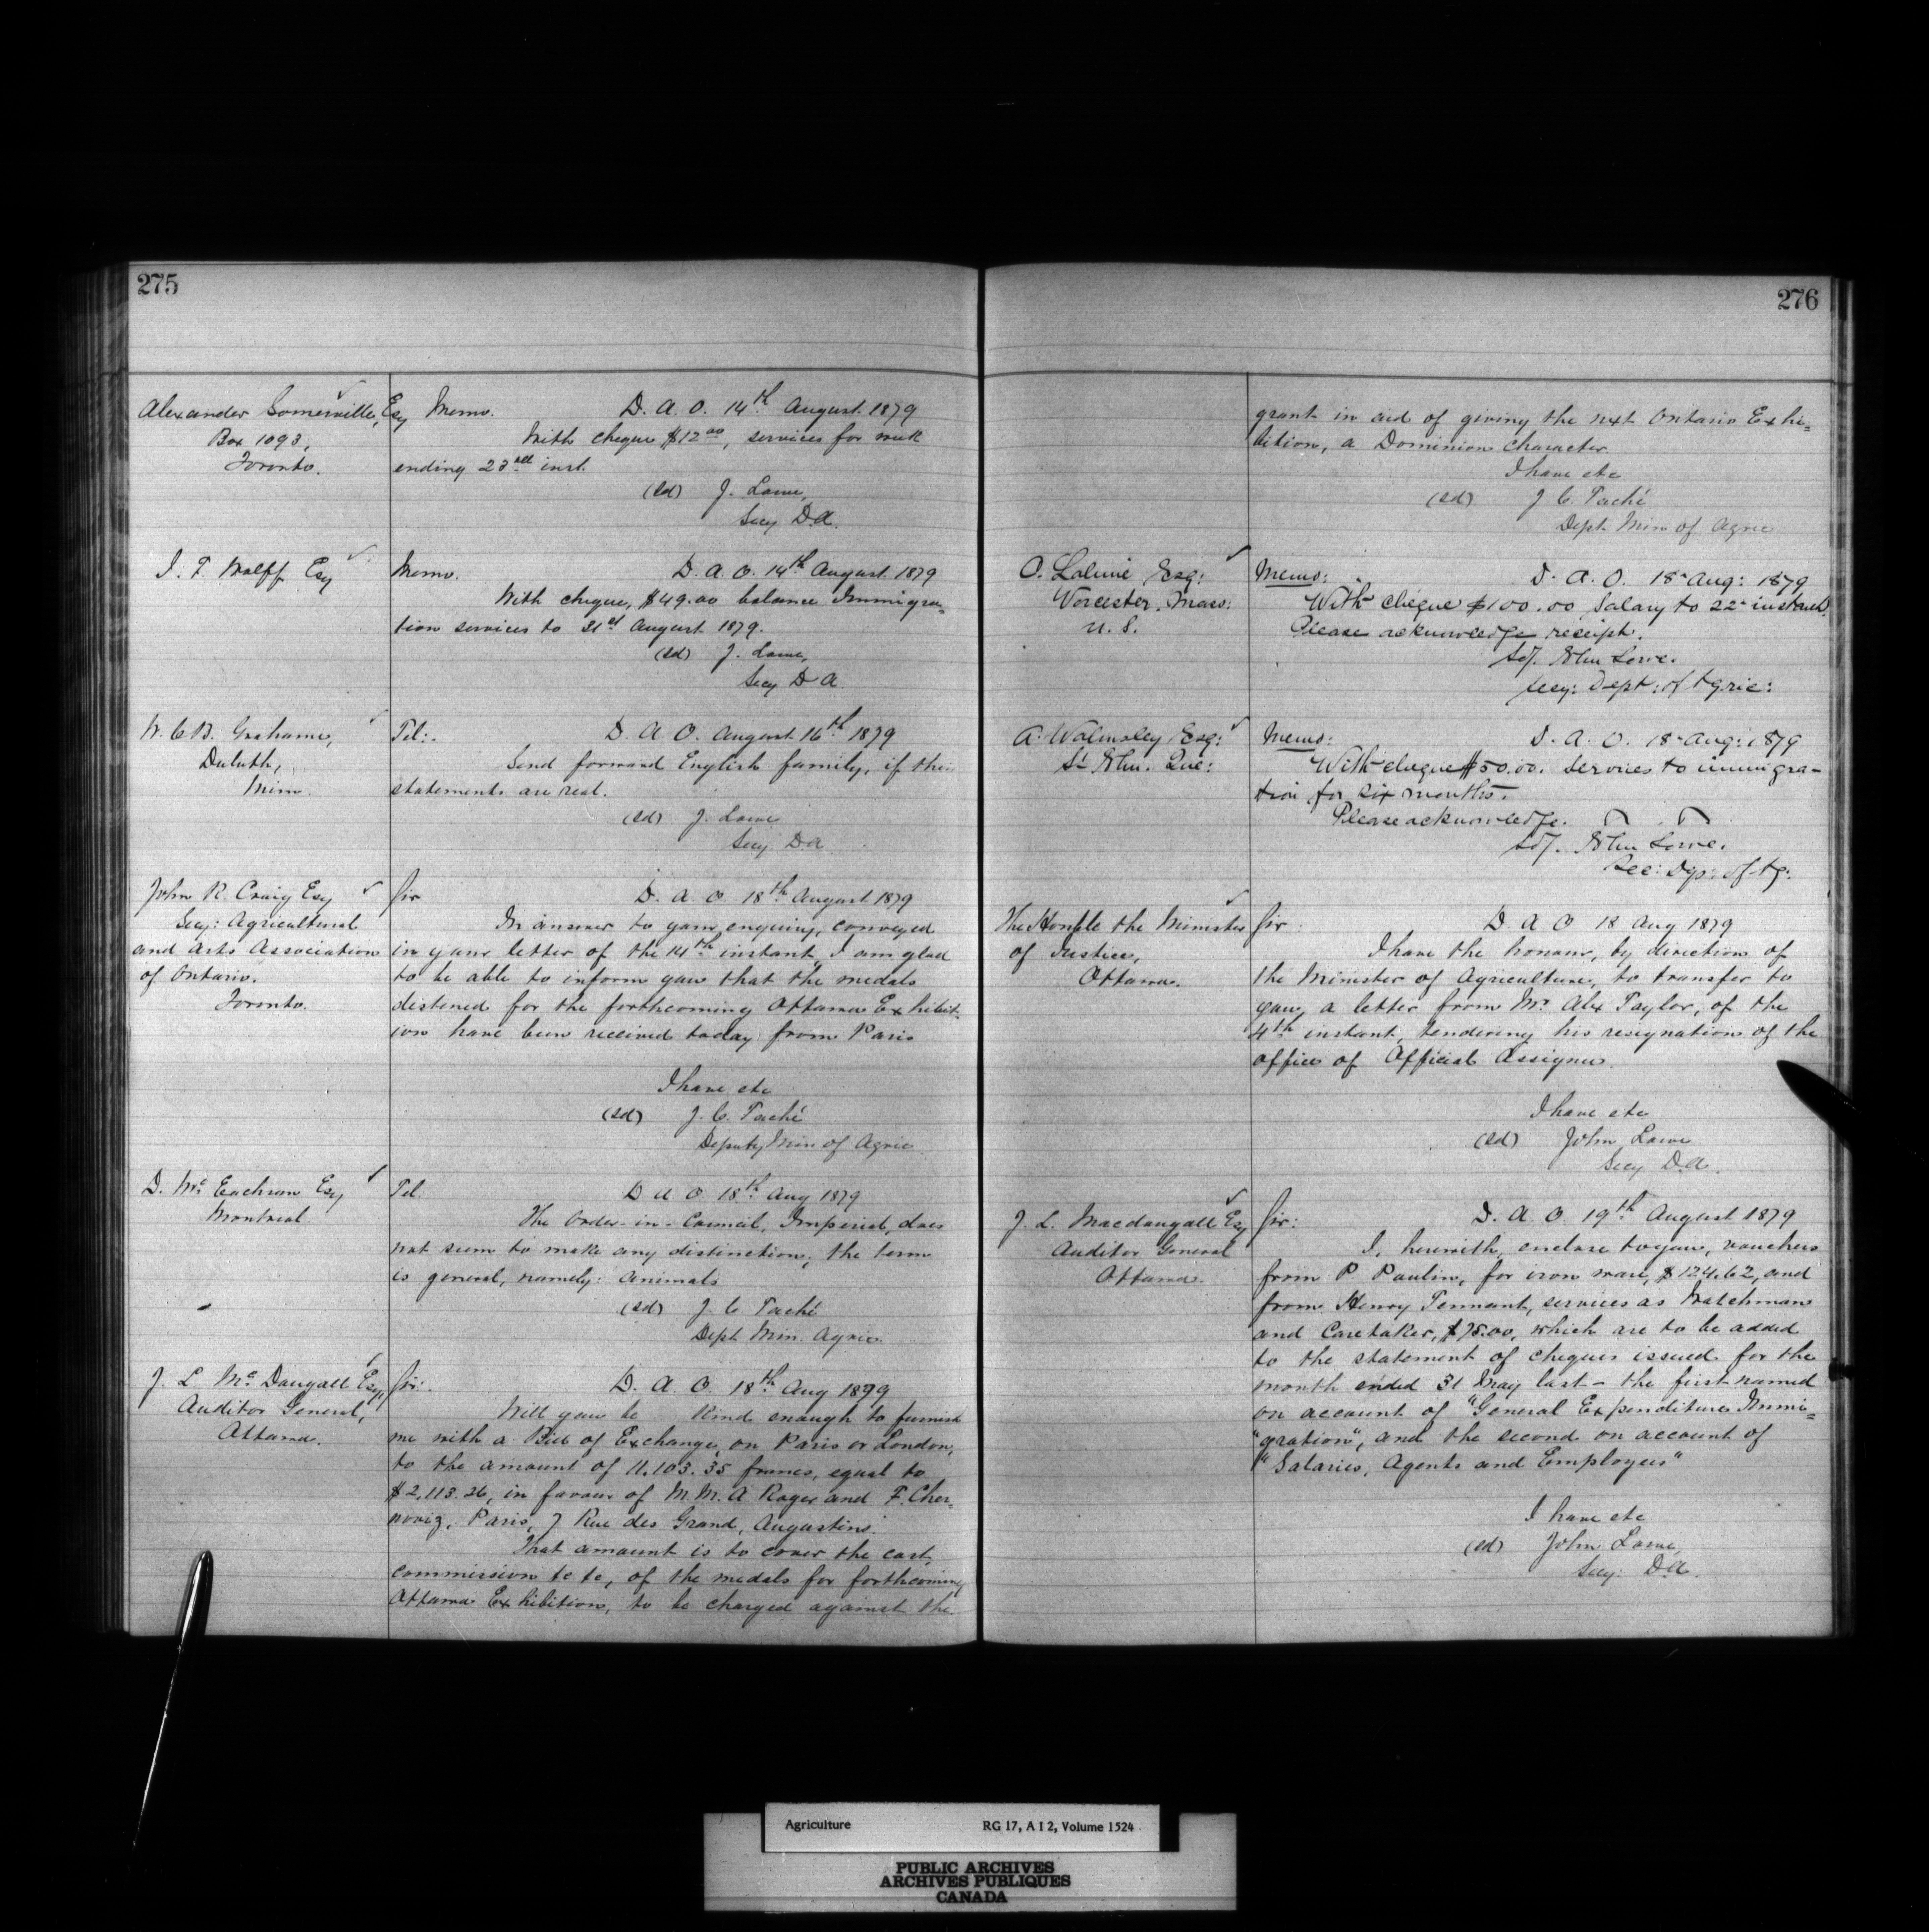 275
Alexander Somerville, Esq
Box 1093,
Toronto.
Memo. D. A. O. 14th August 1879
With cheque $12.00, services for week
ending 23rd inst.
(sd) J. Lowe,
Secy D.A.
J. F. Wolff Esq
Memo. D. A. O. 14th August 1879
With cheque, $49.00 balance Immigra=
tion services to 31st August 1879.
(sd) J. Lowe,
Secy D A
W. C. B. Grahame,
Duluth,
Minn.
Tel:- D. A. O. August 16th 1879
Send forward English family, if the
statements are real.
(sd) J. Lowe
Secy DA
John R. Craig Esq
Secy: Agricultural
and Arts Association
of Ontario.
Toronto.
Sir D. A. O. 18th August 1879
In answer to your enquiry, conveyed
in your letter of the 14th instant, I am glad
to be able to inform you that the medals
destined for the forthcoming Ottawa Exhibit-
ion have been received today from Paris
I have etc
(sd) J. C. Taché
Deputy Min of Agric
D. Mc Eachran Esq
Montreal
Tel. D A O 18th Aug 1879
The Order-in-Council, Imperial, does
not seem to make any distinction; the term
is general, namely: animals
(sd) J. C Taché
Dept Min. Agric.
J. L Mc Dougall Esq,
Auditor General,
Ottawa.
Sir:. D. A. O. 18th Aug 1879
Will you be kind enough to furnish
me with a Bill of Exchange, on Paris or London,
to the amount of 11.103.35 francs, equal to
$2,113.26, in favour of M.M. A Roger and F. Cher=
noviz, Paris, 7 Rue des Grand, Augustins.
That amount is to cover the cost,
commission &c &c, of the medals for forthcoming
Ottawa Exhibition, to be charged against the
276
grant in aid of giving the next Ontario Exhi=
bition, a Dominion Character.
I have etc
(sd) J C. Taché
Dept Min of Agric
O. Lalime Esq:
Worcester, Mass:
U. S.
Memo: D. A. O. 18 Aug: 1879
With cheque $100.00 Salary to 22 instant.
Please acknowledge receipt.
Sd/. John Lowe.
Secy: Dept: of Agric:
A. Walmsley Esq:
St John. Que:
Memo: D. A. O. 18 Aug: 1879
With cheque $50.00. Services to immigra-
tion for six months.
Please acknowledge.
Sd/. John Lowe.
Sec: Dep: of Ag:
The Honble the Minister
of Justice,
Ottawa.
Sir: D A O 18 Aug 1879
I have the honour, by direction of
the Minister of Agriculture, to transfer to
you, a letter from Mr Alex Taylor, of the
4th instant, tendering his resignation of the
office of Official Assignee.
I have etc
(sd) John Lowe
Secy D.A.
J. L. Macdougall Esq
Auditor General
Ottawa.
Sir: D. A. O 19th August 1879
I, herewith, enclose to you, vouchers
from P Paulin, for iron ware, $124.62, and
from Henry Tennant, services as Watchman
and Caretaker, $75.00, which are to be added
to the statement of cheques issued for the
month ended 31 May last - the first named
on account of "General Expenditure Immi=
"gration", and the second on account of
"Salaries, Agents and Employees"
I have etc
(sd) John Lowe,
Secy: D.A.
Agriculture RG 17, A I 2, Volume 1524
PUBLIC ARCHIVES
ARCHIVES PUBLIQUES
CANADA